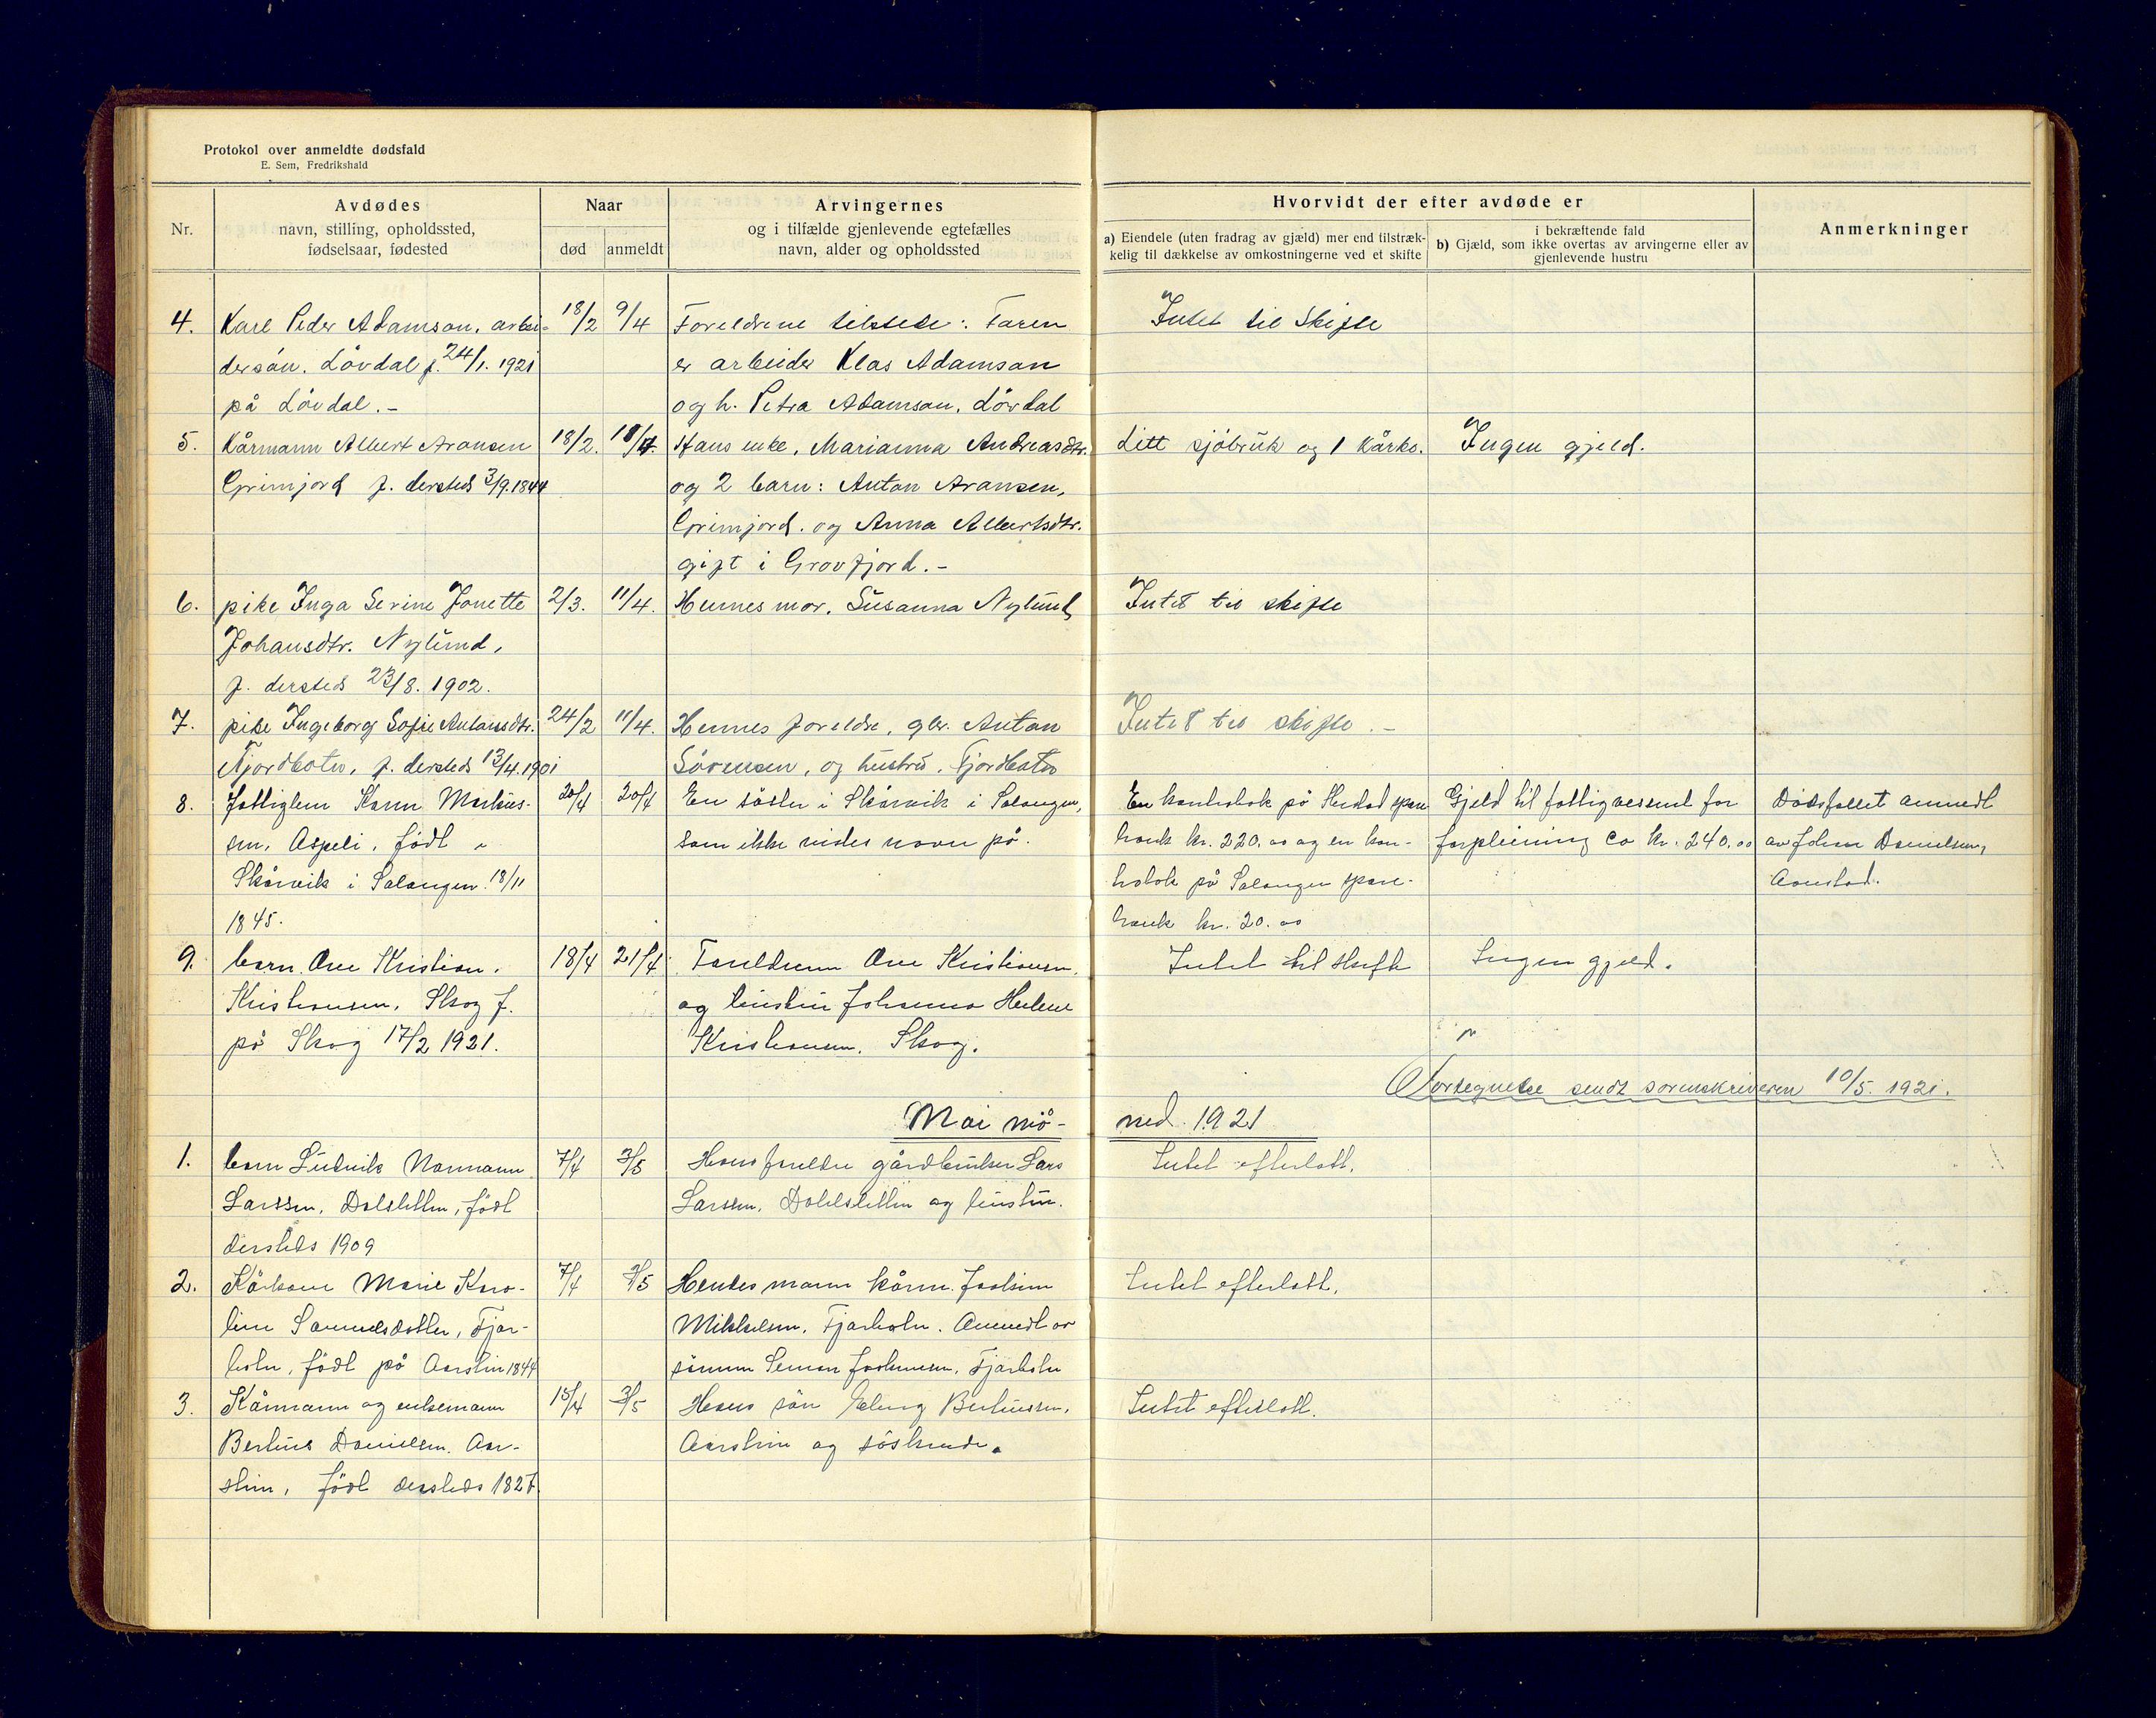 Protokol over anmeldte dødsfald
E. Sem, Fredrikshald
Nr.
Avdødes
navn, stilling, opholdssted,
fødselsaar, fødested
Naar
død
anmeldt
Arvingernes
og i tilfælde gjenlevende egtefælles
navn, alder og opholdssted
Hvorvidt der efter avdøde er
a) Eiendele (uten fradrag av gjæld) mer end tilstræk-
kelig til dækkelse av omkostningerne ved et skifte
i bekræftende fald
b) Gjæld, som ikke overtas av arvingerne eller av
gjenlevende hustru
Anmerkninger
4. Karl Peder Adamson, arbei- 18/2 9/4 Foreldrene tilstede: Faren Intet til skifte
dersøn. Lövdal f. 24/1. 1921 er arbeider Klas Adamson
på Lövdal. - og h. Petra Adamson, Lövdal
5. Kårmann Albert Aronsen 18/2. Hans enke, Marianna Andreasdtr. Litt sjöbruk og 1 kårko. Ingen gjeld.
Grimjord f. dersteds 3/9.1844 og 2 barn: Anton Aronsen,
Grimjord. og Anna Albertsdtr.
gift i Grovfjord. -
6. pike Inga Serine Jonette 2/3. 11/4. Hennes mor, Susanna Nylund, Intet til skifte
Johansdtr. Nylund,
f. dersteds 23/8. 1902.
7. pike Ingeborg Sofie Antonsdtr. 24/2 11/4. Hennes foreldre, gbr. Anton Intet til skifte. -
Fjordbotn, f. dersteds 13/4.1901 Sörensen, og hustru, Fjordbotn
8. Fattiglem Karen Markus- 20/4 20/4 En söster i Skårvik i Salangen, En kontrabok på spare Gjeld til fattigvesenet for Dödsfallet anmeldt
sen, Aspeli, födt i som ikke vides navn på. bank kr. 220.00 og en kon- forpleining ca kr. 240.00 av Johan Danielsen,
Skårvik i Salangen 18/11 trabok på Salangen spare-
1845. bank kr. 20.00
9. barn Ove Kristian. 18/4 21/4 Foreldrene Ove Kristiansen Intet til skifte Ingen gjeld.
Kristiansen, Skog f. og hustru Johanna Helene
på Skog 17/2 1921. Kristiansen, Skog.
Fortegnelse sendt sorenskriveren 10/5. 1921.
Mai må- ned. 1921
1. barn Ludvik Normann 7/4 3/5 Hans foreldre gårdbruker Lars Intet efterlatt.
Larssen, Dalsletten, födt Larssen, Dalsletten og hustru.
dersteds 1909
2. Kårkone Marie Karo- 7/4 3/5 Hendes mann kårm. Joakim Intet efterlatt.
line Samuelsdatter, Fjor- Mikkelsen, Fjorbotn. Anmeldt av
botn, födt på Aarstein 1844 sönnen Simon Joakimsen, Fjorbotn
3. Kårmann og enkemann 15/4 3/5 Hans sön Berteussen, Intet efterlatt.
Berteus Danielsen. Aar- Aarstein og söskende.
stein, födt dersteds 1827.